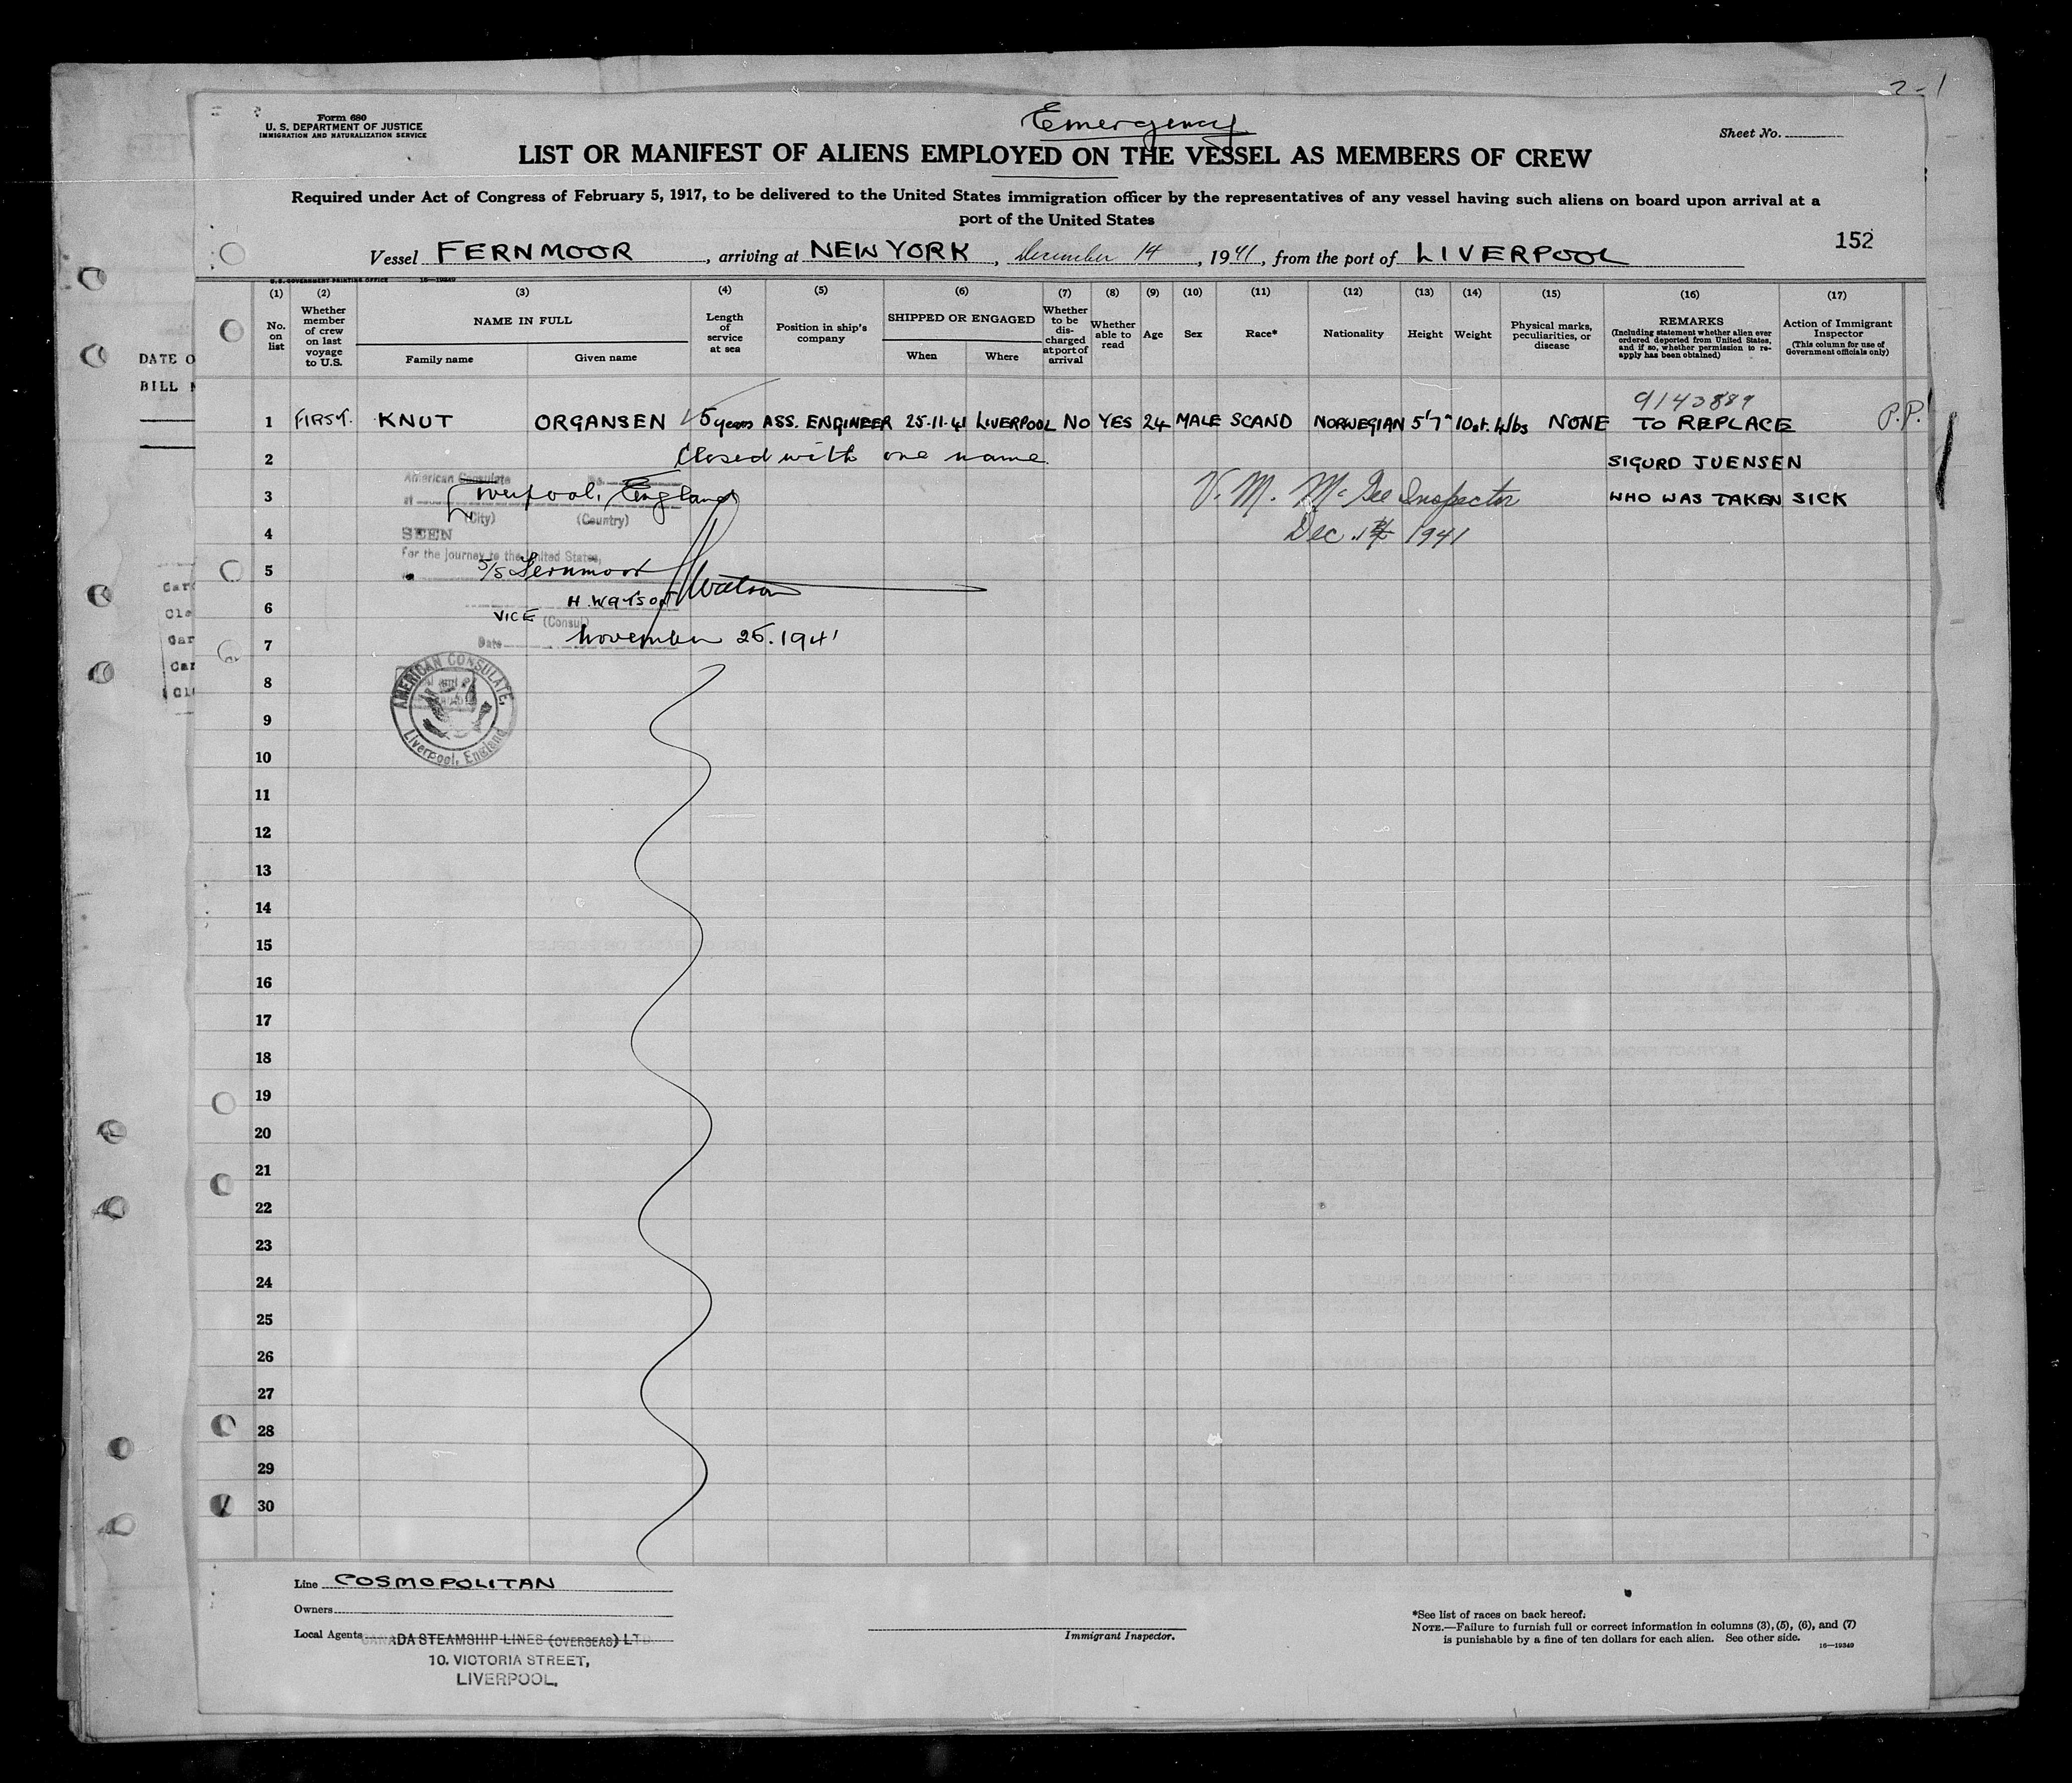 2-1
Form 680
U. S. DEPARTMENT OF JUSTICE
IMMIGRATION AND NATURALIZATION SERVICE
Emergency
Sheet No.
LIST OR MANIFEST OF ALIENS EMPLOYED ON THE VESSEL AS MEMBERS OF CREW
Required under Act of Congress of February 5, 1917, to be delivered to the United States immigration officer by the representatives of any vessel having such aliens on board upon arrival at a
port of the United States
152
Vessel FERNMOOR, arriving at NEW YORK, December 14, 1941, from the port of LIVERPOOL
U.S. GOVERNMENT PRINTING OFFICE 16—19349
(1) (2) (3) (4) (5) (6) (7) (8) (9) (10) (11) (12) (13) (14) (15) (16) (17)
No. on list
Whether member of crew on last voyage to U.S.
NAME IN FULL
Family name
Given name
Length of service at sea
Position in ship's company
SHIPPED OR ENGAGED
When
Where
Whether to be discharged at port of arrival
Whether able to read
Age
Sex
Race*
Nationality
Height
Weight
Physical marks, peculiarities, or disease
REMARKS
(Including statement whether alien ever ordered deported from United States, and if so, whether permission to reapply has been obtained)
Action of Immigrant Inspector
(This column for use of Government officials only)
DATE O
BILL
9143889
1 FIRST. KNUT ORGANSEN 5 years ASS. ENGINEER 25-11-41 LIVERPOOL NO YES 24 MALE SCAND NORWEGIAN 5'7" 10st. 4lbs NONE TO REPLACE P.P.
2 Closed with one name. SIGURD JUENSEN
American Consulate
3 at Liverpool, England V. M. McGee Inspector WHO WAS TAKEN SICK
(City) (Country)
4 SEEN Dec. 14 1941
for the journey to the United States,
5 S/S Fernmoor
H Watson
6 H. Watson
VICE (Consul)
7 Date November 25. 1941
8
AMERICAN CONSULATE,
Liverpool, England
9
10
11
12
13
14
15
16
17
18
19
20
21
22
23
24
25
26
27
28
29
30
Line COSMOPOLITAN
Owners
Local Agents CANADA STEAMSHIP LINES (OVERSEAS) LTD.
10. VICTORIA STREET,
LIVERPOOL.
Immigrant Inspector.
*See list of races on back hereof.
NOTE.—Failure to furnish full or correct information in columns (3), (5), (6), and (7)
is punishable by a fine of ten dollars for each alien. See other side. 16—19349